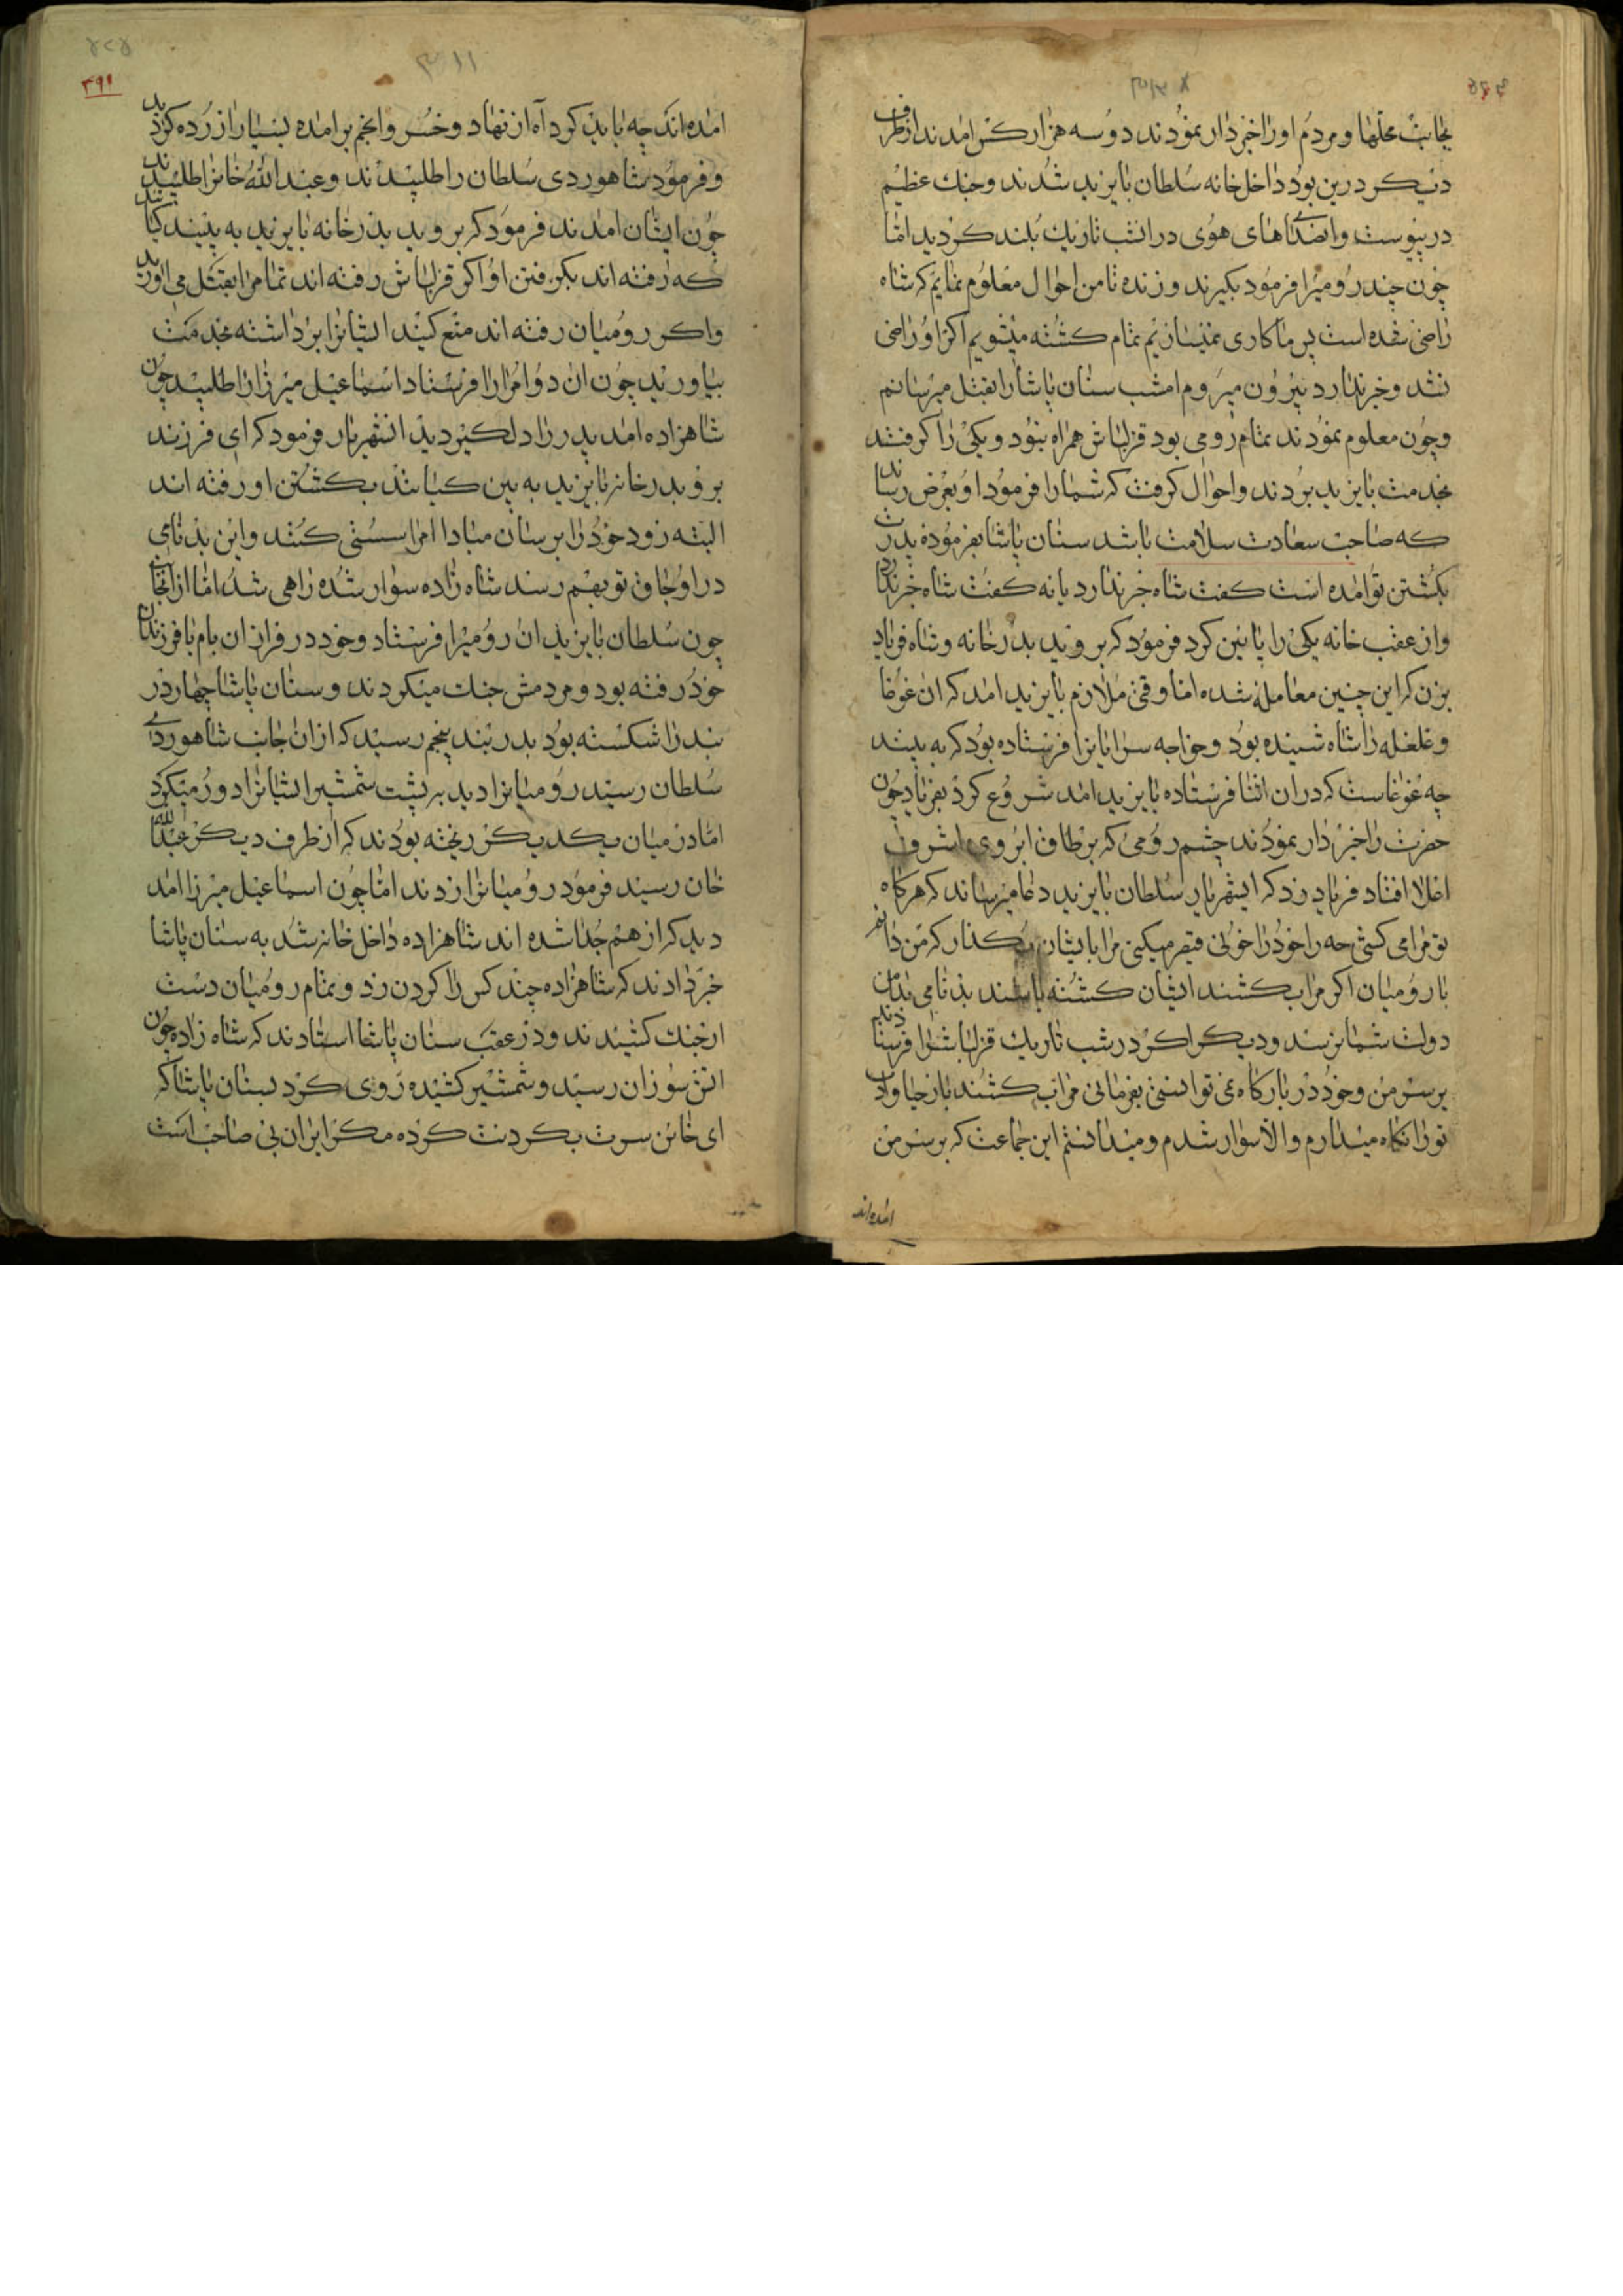 بجانب محلها و مردم او را خبردار نمودند دو سه هزار کس امدند از طرف
دیکر درین بود داخل خانه سلطان بایزید شدند و جنک عظیم
در پیوست و صداهای هوی در ان شب تاریک بلند کردید اما
چون چند رومیرا فرمود بکیرند و زنده تا من احوال معلوم نمایم که شاه
راضی شده است پس ما کاری نمیسازیم تمام کشته میشویم اکر او راضی
نشد و خبر ندارد بیرون میروم امشب سنان پاشا را بقتل میرسانم
و چون معلوم نمودند تمام رومی بود قزلباش همراه نبود و یکی را کرفتند
بخدمت بایزید بردند و احوال کرفت که شما را فرمود او بعرض رساند
که صاحب سعادت سلامت باشد سنان پاشا بفرموده پدرت
بکشتن تو امده است کفت شاه خبر ندارد یا نه کفت شاه خبر ندارد
و از عقب خانه یکی را پائین کرد فرمود که بروید بدرخانه و شاه فریاد
بزن که این چنین معامله شده اما وقتی ملازم بایزید امد که ان غوغا
و غلغله را شاه شنیده بود و خواجه سرایانرا فرستاده بود که به بیند
چه غوغاست که در ان اثنا فرستاده بایزید امد شروع کرد بفریاد چون
حضرت را خبردار نمودند چشم رومی که بر طاق ابروی اشرف
اعلا افتاد فریاد زد که ایشهریار سلطان بایزید دعا میرساند که هرکاه
تو مرا می کشی چه را خود را خونی قیصر میکنی مرا با ایشان بکذار که من دانم
با رومیان اکر مرا بکشند ایشان کشته باشند بدنامی بدامن
دولت شما نرسد و دیکر اکر در شب تاریک قزلباشرا فرستادند
بر سر من و خود در بارکاه می توانستی بفرمائی مرا بکشند باز حیا و ادب
تو را نکاه میدارم و الا سوار شدم و میدانستم این جماعت که بر سر من
امده اند
امده اند چه باید کرد آه از نهاد و خسر و انجم بر امده بسیار ازرده کردید
و فرمود شاهوردی سلطان را طلبیدند و عبدالله خانرا طلبیدند
چون ایشان امدند فرمود که بروید بدرخانه بایزید به بینید کیانند
که رفته اند بکرفتن او اکر قزلباش رفته اند تمام را بقتل می اورید
و اکر رومیان رفته اند منع کنید ایشانرا برداشته بخدمت
بیاورید چون ان دو امرا را فرستاد اسماعیل میرزا را طلبید چون
شاهزاده امد پدر را دلکیر دید انشهریار فرمود که ای فرزند
برو بدرخانه بایزید به بین کیانند بکشتن او رفته اند
البته زود خود را برسان مبادا امرا سستی کنند و این بدنامی
در اوجاق تو بهم رسد شاه زاده سوار شده راهی شد اما از انجا
چون سلطان بایزید ان رومیرا فرستاد و خود در فراز ان بام با فرزندان
خود رفته بود و مردمش جنک میکردند و سنان پاشا چهار در
بند را شکسته بود بدربند پنجم رسید که از ان جانب شاهوردی
سلطان رسید رومیانرا دید به پشت شمشیر ایشانرا دور میکرد
اما در میان یکدیکر ریخته بودند که از طرف دیکر عبدالله
خان رسید فرمود رومیانرا زدند اما چون اسماعیل میرزا امد
دید که از هم جدا شده اند شاهزاده داخل خانه شد به سنان پاشا
خبر دادند که شاهزاده چند کس را کردن زد و تمام رومیان دست
از جنک کشیدند و در عقب سنان پاشا استادند که شاه زاده چون
اتش سوزان رسید و شمشیر کشیده روی کرد بسنان پاشا که
ای خاین سرت بکردنت کرده مکر ایران بی صاحب است